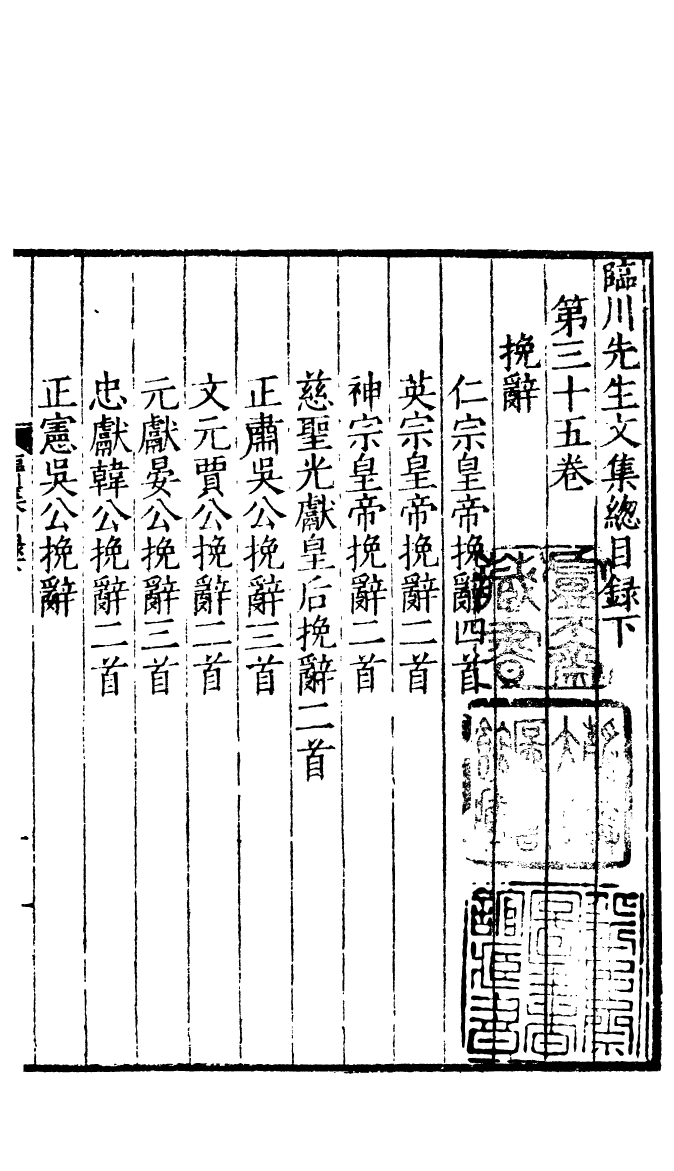 臨川先生文集總目録下
第三十五卷
挽辭
仁宗皇帝挽辭四首
英宗皇帝挽辭二首
神宗皇帝挽辭二首
慈聖光獻皇后挽辭二首
正肅吳公挽辭三首
文元賈公挽辭二首
元獻晏公挽辭三首
忠獻韓公挽辭二首
正憲吳公挽辭